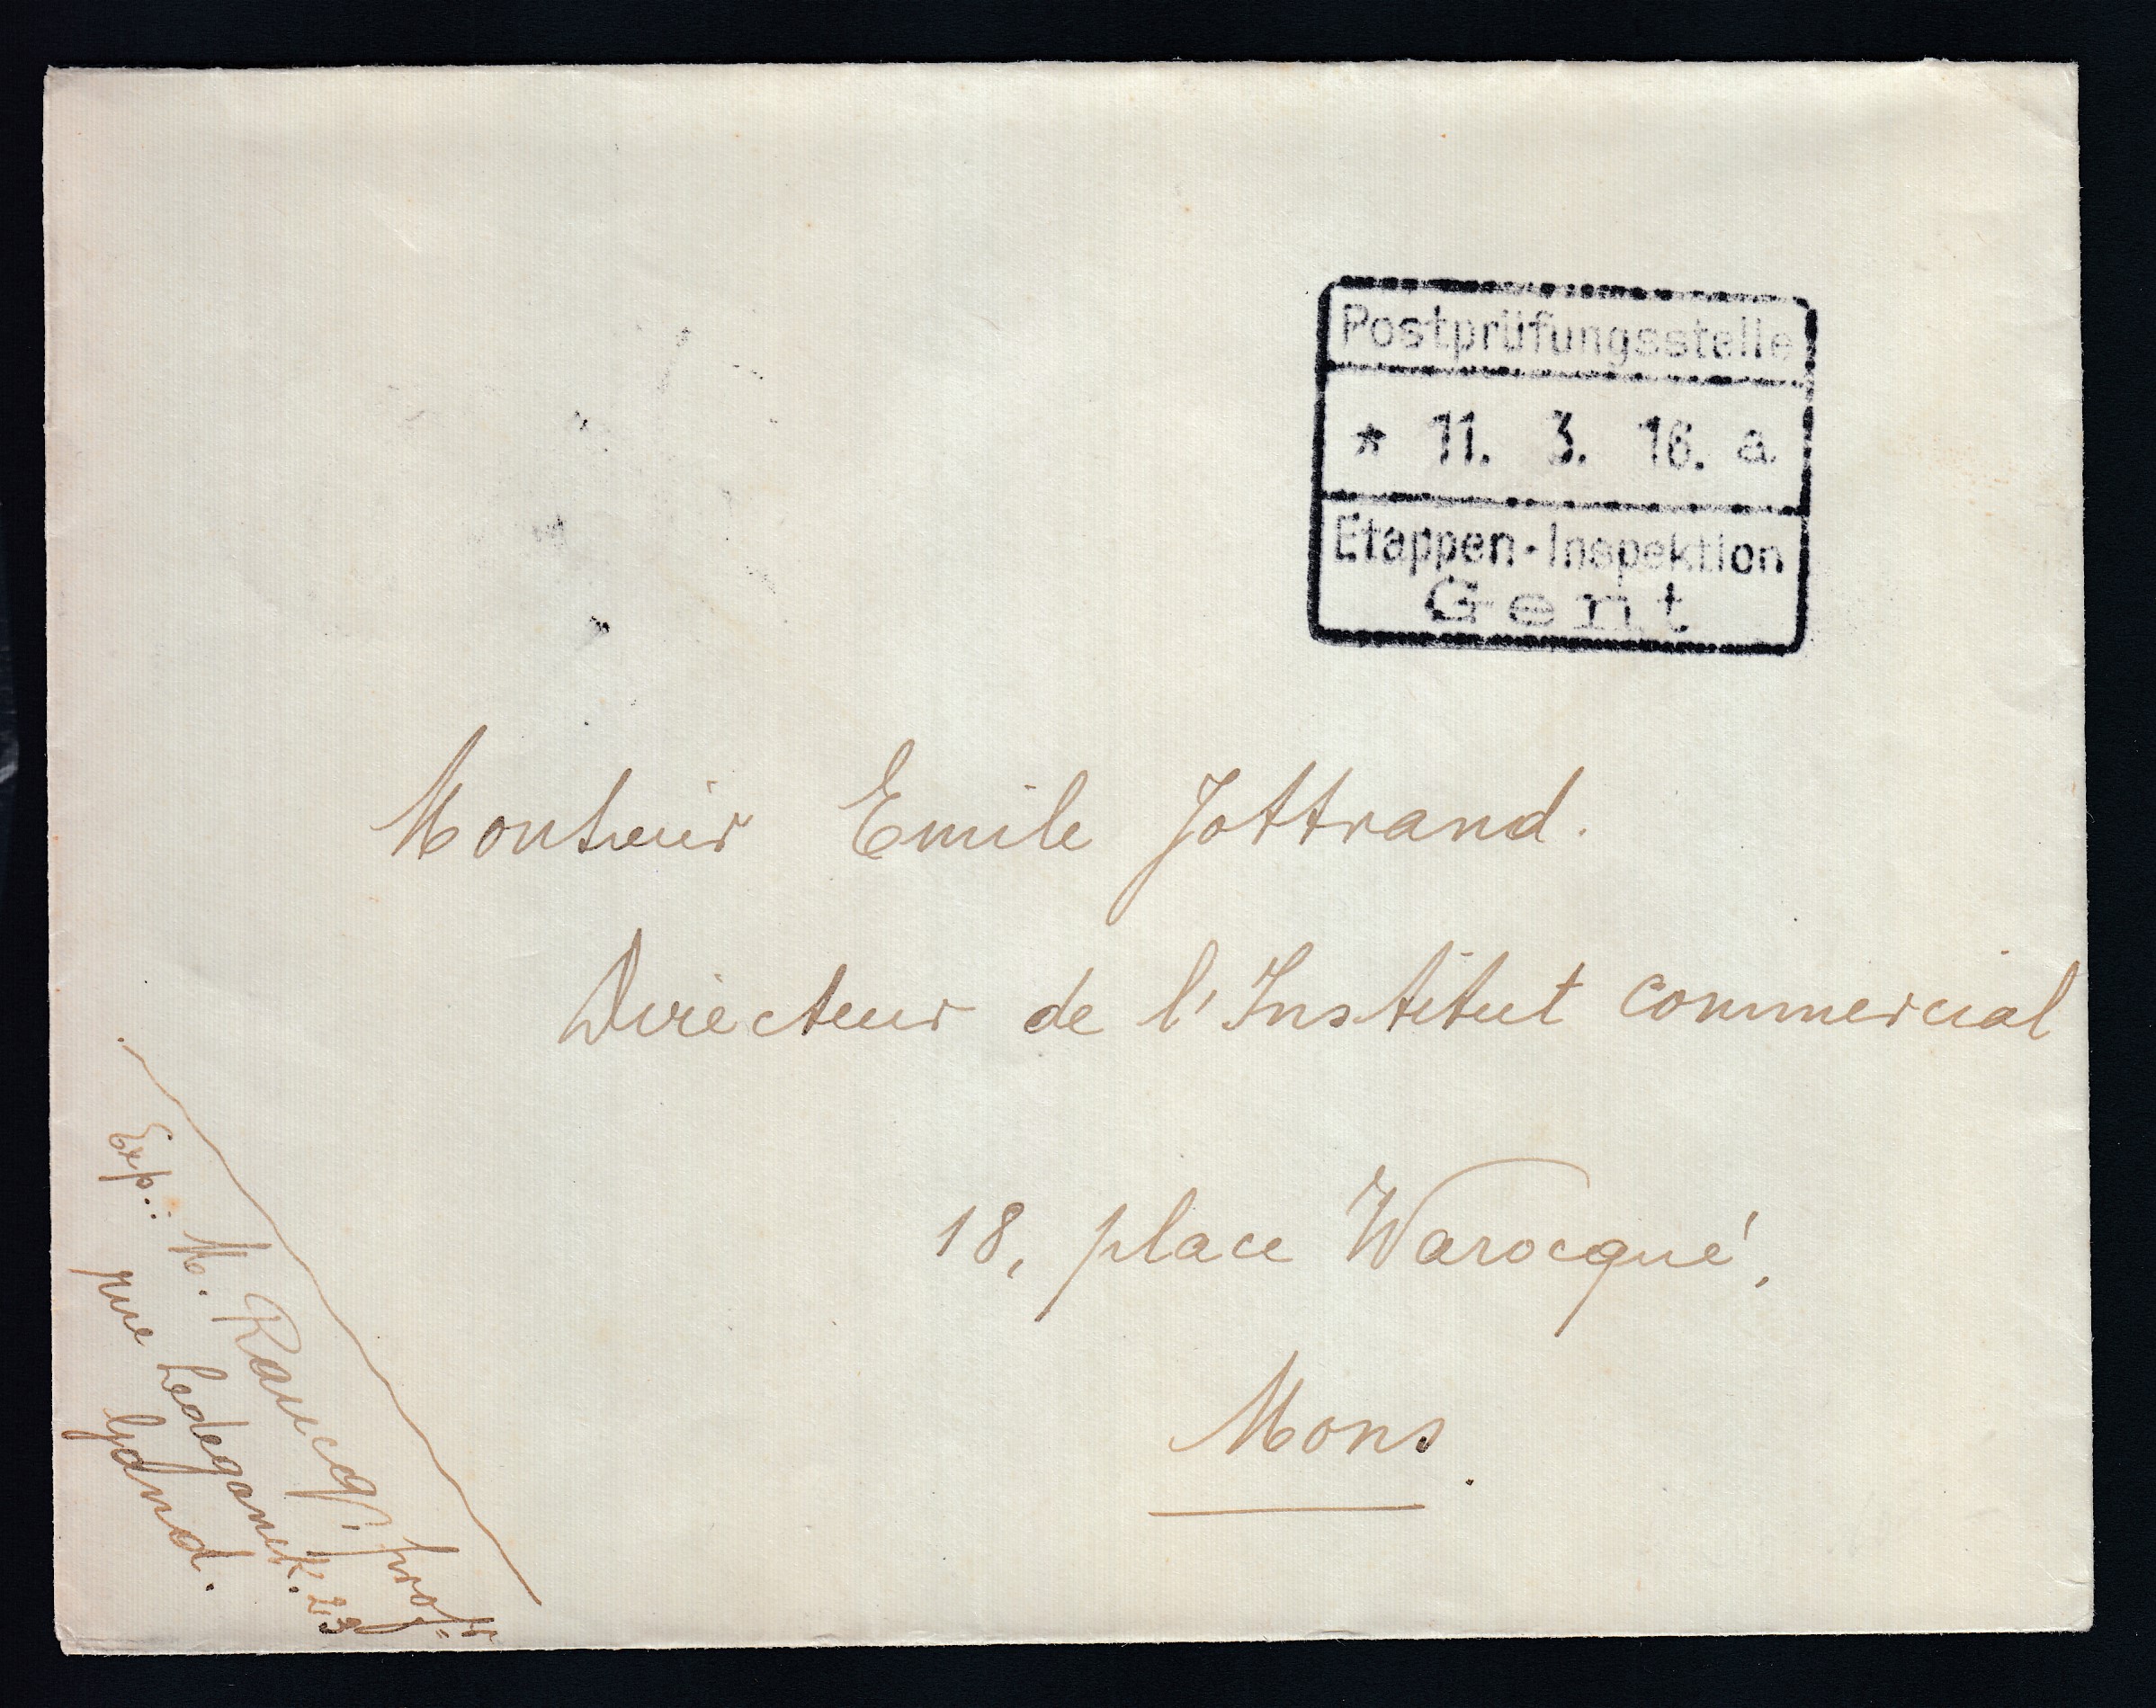 Postprüfungsstelle
* 11. 3. 16. a
Etappen-Inspektion
Gent
Monsieur Emile Jottrand.
Directeur de l'Institut commercial
18, place Warocqué,
Mons.
Exp.: M. Raucq, prof.r
rue Ledeganck. 23
Gand.